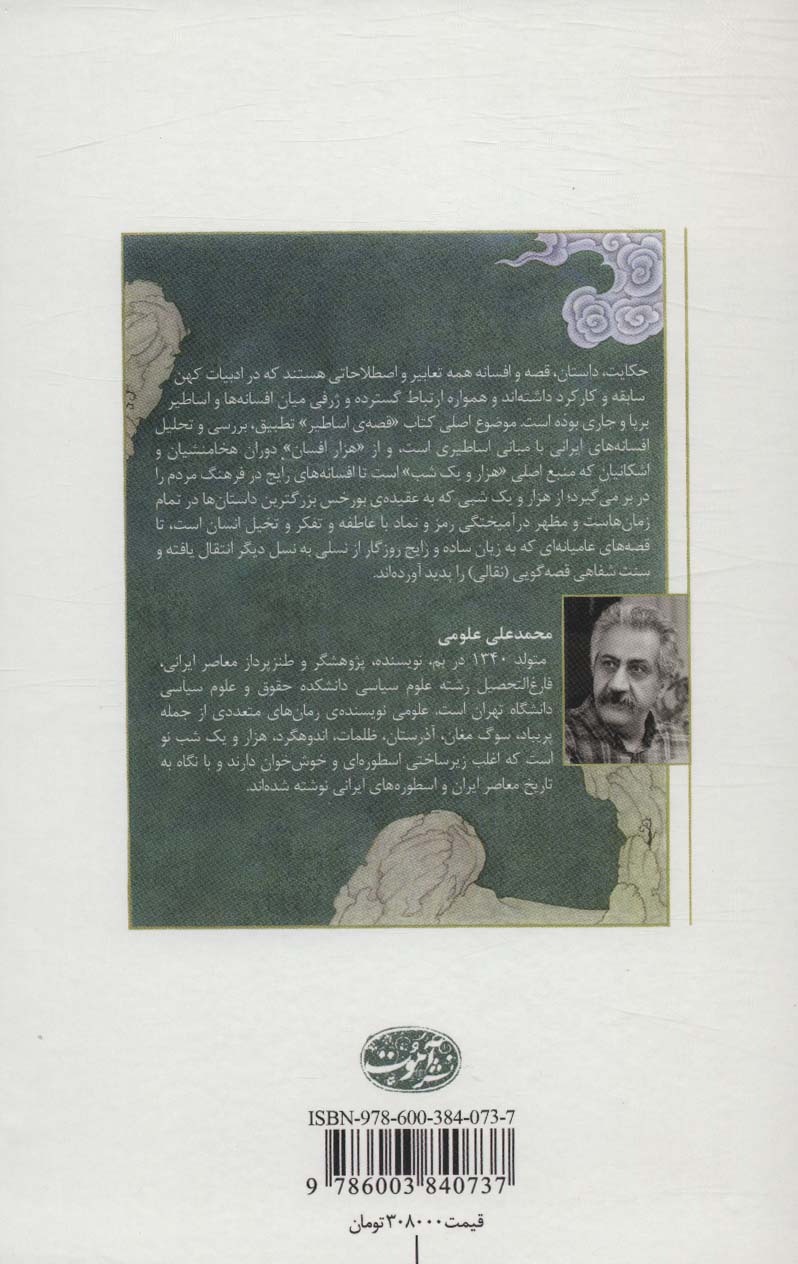 حکایت، داستان، قصه و افسانه همه تعابیر و اصطلاحاتی هستند که در ادبیات کهن
سابقه و کارکرد داشته‌اند و همواره ارتباط گسترده و ژرفی میان افسانه‌ها و اساطیر
برپا و جاری بوده است. موضوع اصلی کتاب «قصه‌ی اساطیر» تطبیق، بررسی و تحلیل
افسانه‌های ایرانی با مبانی اساطیری است، و از «هزار افسان» دوران هخامنشیان و
اشکانیان که منبع اصلی «هزار و یک شب» است تا افسانه‌های رایج در فرهنگ مردم را
در بر می‌گیرد؛ از هزار و یک شبی که به عقیده‌ی بورخس بزرگترین داستان‌ها در تمام
زمان‌هاست و مظهر درآمیختگی رمز و نماد با عاطفه و تفکر و تخیل انسان است، تا
قصه‌های عامیانه‌ای که به زبان ساده و رایج روزگار از نسلی به نسل دیگر انتقال یافته و
سنت شفاهی قصه‌گویی (نقالی) را پدید آورده‌اند.
محمدعلی علومی
متولد ۱۳۴۰ در بم، نویسنده، پژوهشگر و طنزپرداز معاصر ایرانی،
فارغ‌التحصیل رشته علوم سیاسی دانشکده حقوق و علوم سیاسی
دانشگاه تهران است. علومی نویسنده‌ی رمان‌های متعددی از جمله
پریباد، سوگ مغان، آذرستان، ظلمات، اندوهگرد، هزار و یک شب نو
است که اغلب زیرساختی اسطوره‌ای و خوش‌خوان دارند و با نگاه به
تاریخ معاصر ایران و اسطوره‌های ایرانی نوشته شده‌اند.
نشر آموت
ISBN-978-600-384-073-7
9 786003 840737
قیمت ۳۰۸۰۰۰ تومان